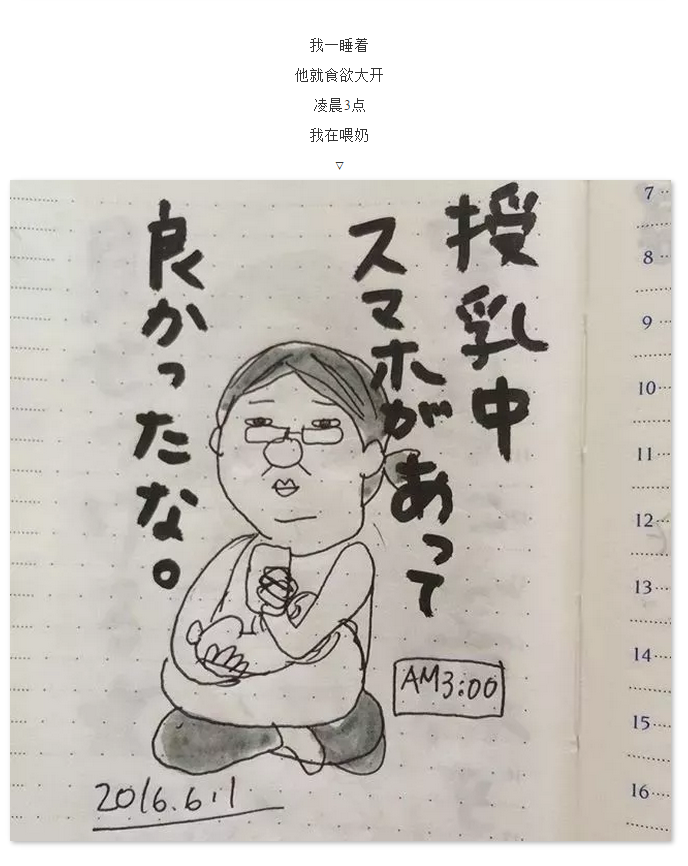 我一睡着
他就食欲大开
凌晨3点
我在喂奶
▽
授乳中
スマホがあって
良かったな。
AM3:00
2016.6.1
7
8
9
10
11
12
13
14
15
16